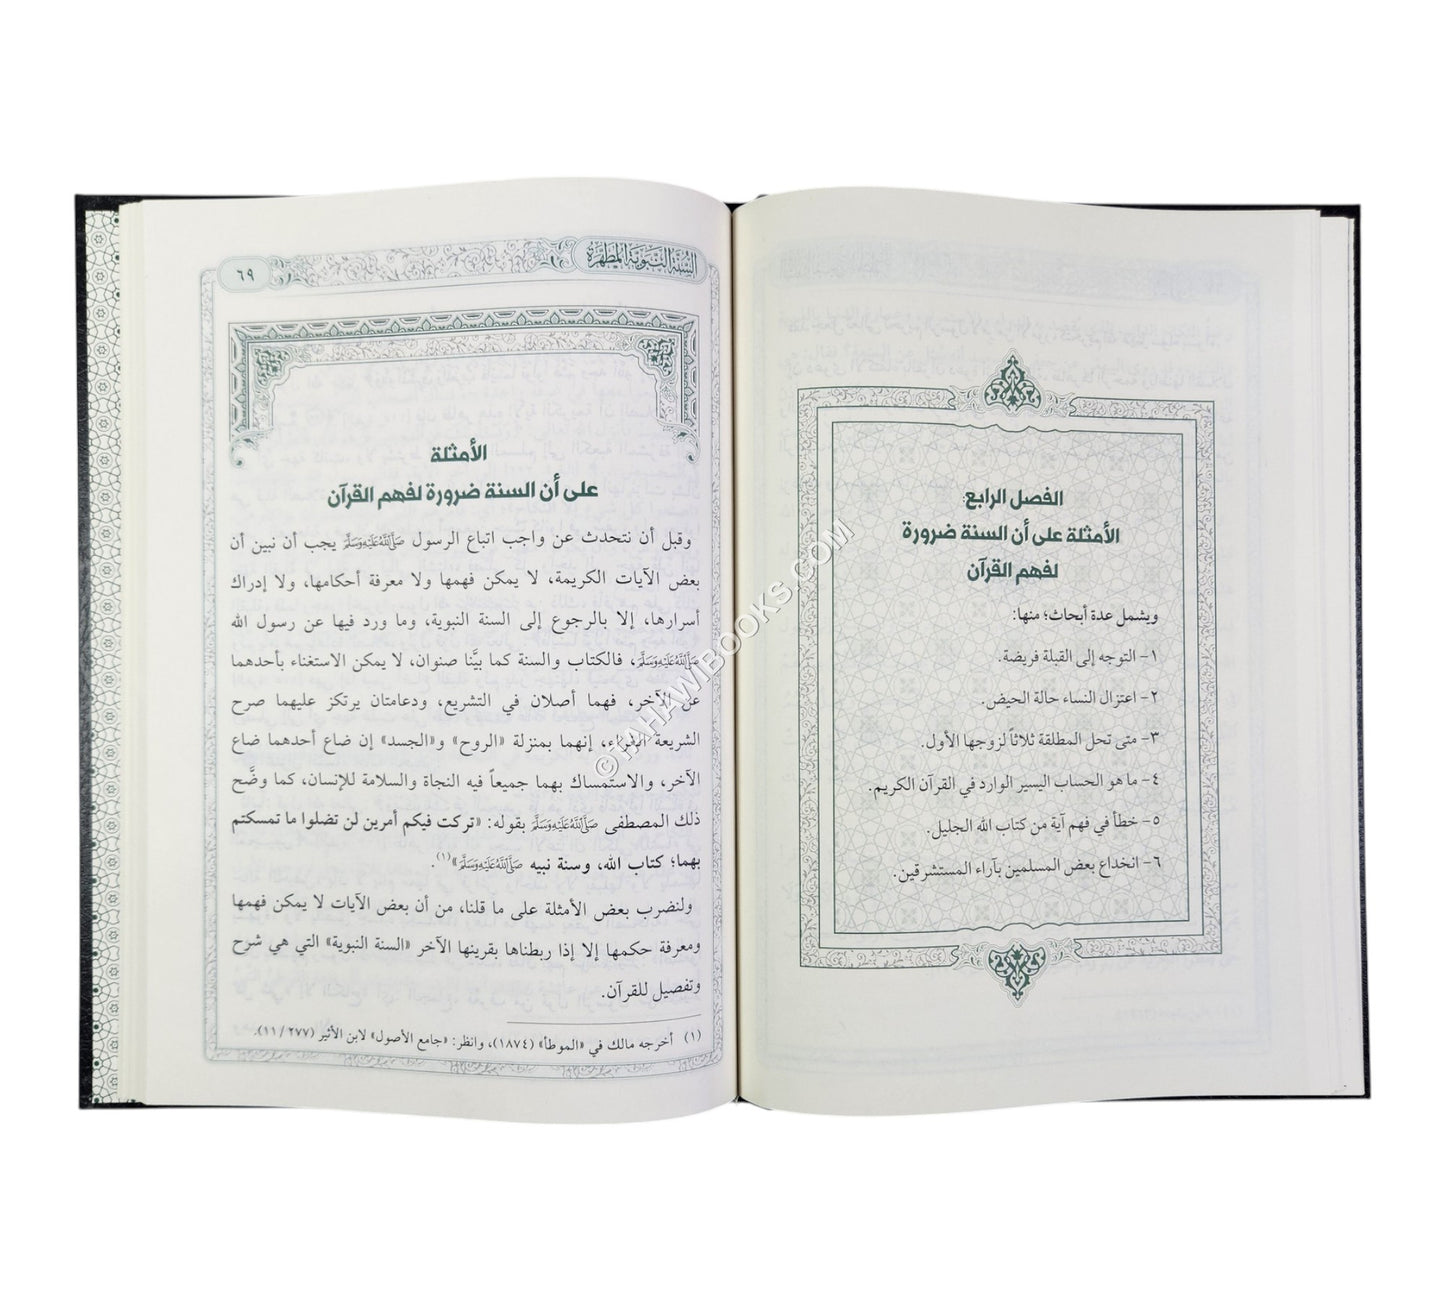 الفصل الرابع:
الأمثلة على أن السنة ضرورة
لفهم القرآن
ويشمل عدة أبحاث؛ منها:
١- التوجه إلى القبلة فريضة.
٢- اعتزال النساء حالة الحيض.
٣- متى تحل المطلقة ثلاثاً لزوجها الأول.
٤- ما هو الحساب اليسير الوارد في القرآن الكريم.
٥- خطأ في فهم آية من كتاب الله الجليل.
٦- انخداع بعض المسلمين بآراء المستشرقين.
السُّنَّة النَّبَوِيَّة المُطَهَّرَة
٦٩
الأمثلة
على أن السنة ضرورة لفهم القرآن
وقبل أن نتحدث عن واجب اتباع الرسول ﷺ يجب أن نبين أن
بعض الآيات الكريمة، لا يمكن فهمها ولا معرفة أحكامها، ولا إدراك
أسرارها، إلا بالرجوع إلى السنة النبوية، وما ورد فيها عن رسول الله
ﷺ، فالكتاب والسنة كما بيَّنا صنوان، لا يمكن الاستغناء بأحدهما
عن الآخر، فهما أصلان في التشريع، ودعامتان يرتكز عليهما صرح
الشريعة الغراء، إنهما بمنزلة «الروح» و«الجسد» إن ضاع أحدهما ضاع
الآخر، والاستمساك بهما جميعاً فيه النجاة والسلامة للإنسان، كما وضَّح
ذلك المصطفى ﷺ بقوله: «تركت فيكم أمرين لن تضلوا ما تمسكتم
بهما؛ كتاب الله، وسنة نبيه ﷺ»(١).
ولنضرب بعض الأمثلة على ما قلنا، من أن بعض الآيات لا يمكن فهمها
ومعرفة حكمها إلا إذا ربطناها بقرينها الآخر «السنة النبوية» التي هي شرح
وتفصيل للقرآن.
(١) أخرجه مالك في «الموطأ» (١٨٧٤)، وانظر: «جامع الأصول» لابن الأثير (٢٧٧/١١).
©TAHAWIBOOKS.COM